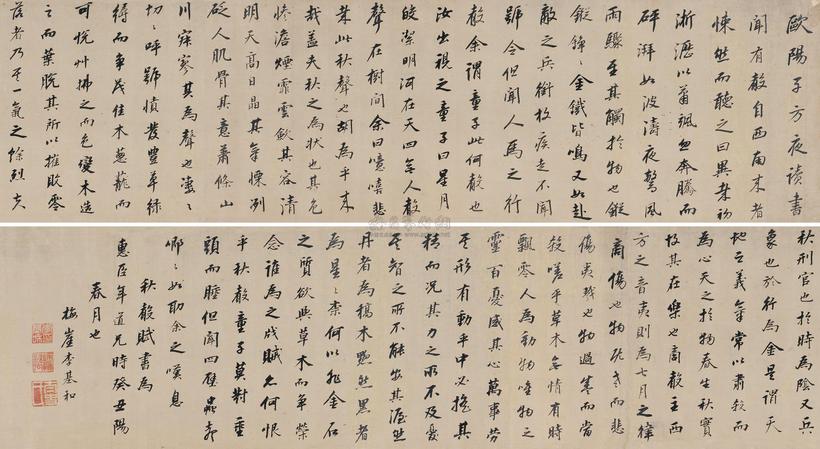 歐陽子方夜讀書
聞有聲自西南來者
悚然而聽之曰異哉初
淅瀝以蕭颯忽奔騰而
砰湃如波濤夜驚風
雨驟至其觸於物也鏦
鏦錚錚金鐵皆鳴又如赴
敵之兵銜枚疾走不聞
號令但聞人馬之行
聲余謂童子此何聲也
汝出視之童子曰星月
皎潔明河在天四無人聲
聲在樹間余曰噫嘻悲
哉此秋聲也胡為乎來
哉蓋夫秋之為狀也其色
慘澹煙霏雲斂其容清
明天高日晶其氣慄冽
砭人肌骨其意蕭條山
川寂寥其為聲也淒淒
切切呼號憤發豐草綠
縟而爭茂佳木蔥蘢而
可悅草拂之而色變木遭
之而葉脫其所以摧敗零
落者乃其一氣之餘烈夫
秋刑官也於時為陰又兵
象也於行為金是謂天
地之義氣常以肅殺而
為心天之於物春生秋實
故其在樂也商聲主西
方之音夷則為七月之律
商傷也物既老而悲
傷夷戮也物過盛而當
殺嗟乎草木無情有時
飄零人為動物唯物之
靈百憂感其心萬事勞
其形有動乎中必搖其
精而況其力之所不及憂
其智之所不能宜其渥然
丹者為槁木黟然黑者
為星星奈何以非金石
之質欲與草木而爭榮
念誰為之戕賊亦何恨
乎秋聲童子莫對垂
頭而睡但聞四壁蟲聲
唧唧如助余之嘆息
秋聲賦書為
惠臣年道兄時癸丑陽
春月也
梅崖李基和